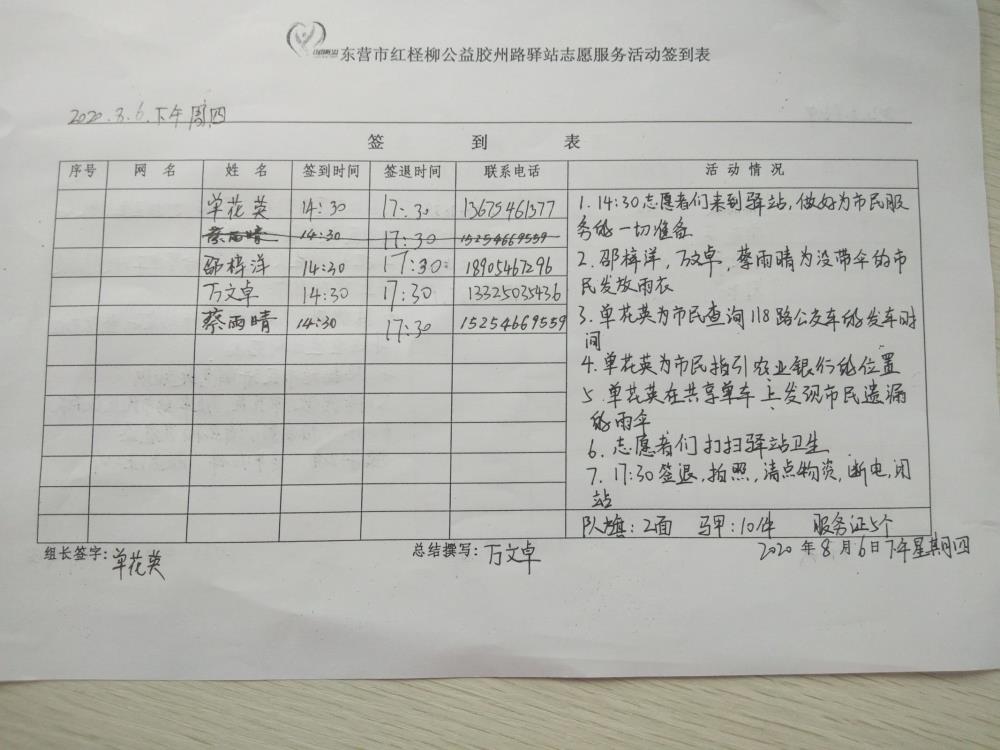 东营市红柽柳公益胶州路驿站志愿服务活动签到表
2020.8.6.下午 周四
签 到 表
序号 网 名 姓 名 签到时间 签退时间 联系电话 活 动 情 况
单花英 14:30 17:30 13675461377
蔡雨晴 14:30 17:30 15254669559
邵梓洋 14:30 17:30 18905467296
万文卓 14:30 17:30 13325035436
蔡雨晴 14:30 17:30 15254669559
1. 14:30志愿者们来到驿站,做好为市民服
务的一切准备
2. 邵梓洋,万文卓,蔡雨晴为没带伞的市
民发放雨衣
3. 单花英为市民查询118路公交车的发车时
间
4. 单花英为市民指引农业银行的位置
5. 单花英在共享单车上发现市民遗漏
的雨伞
6. 志愿者们打扫驿站卫生
7. 17:30签退,拍照,清点物资,断电,闭
站
队旗:2面 马甲:10件 服务证5个
组长签字:单花英 总结撰写:万文卓 2020年8月6日下午星期四